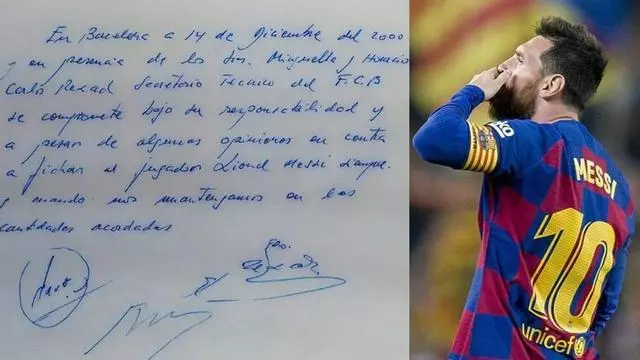 En Barcelona a 14 de Diciembre del 2000
y en presencia de los Srs. Minguella y Horacio
Carlos Rexach Secretario Técnico del F.C.B
se compromete bajo su responsabilidad y
a pesar de algunas opiniones en contra
a fichar al jugador Lionel Messi siempre
y cuando nos mantengamos en las
cantidades acordadas
MESSI
10
unicef